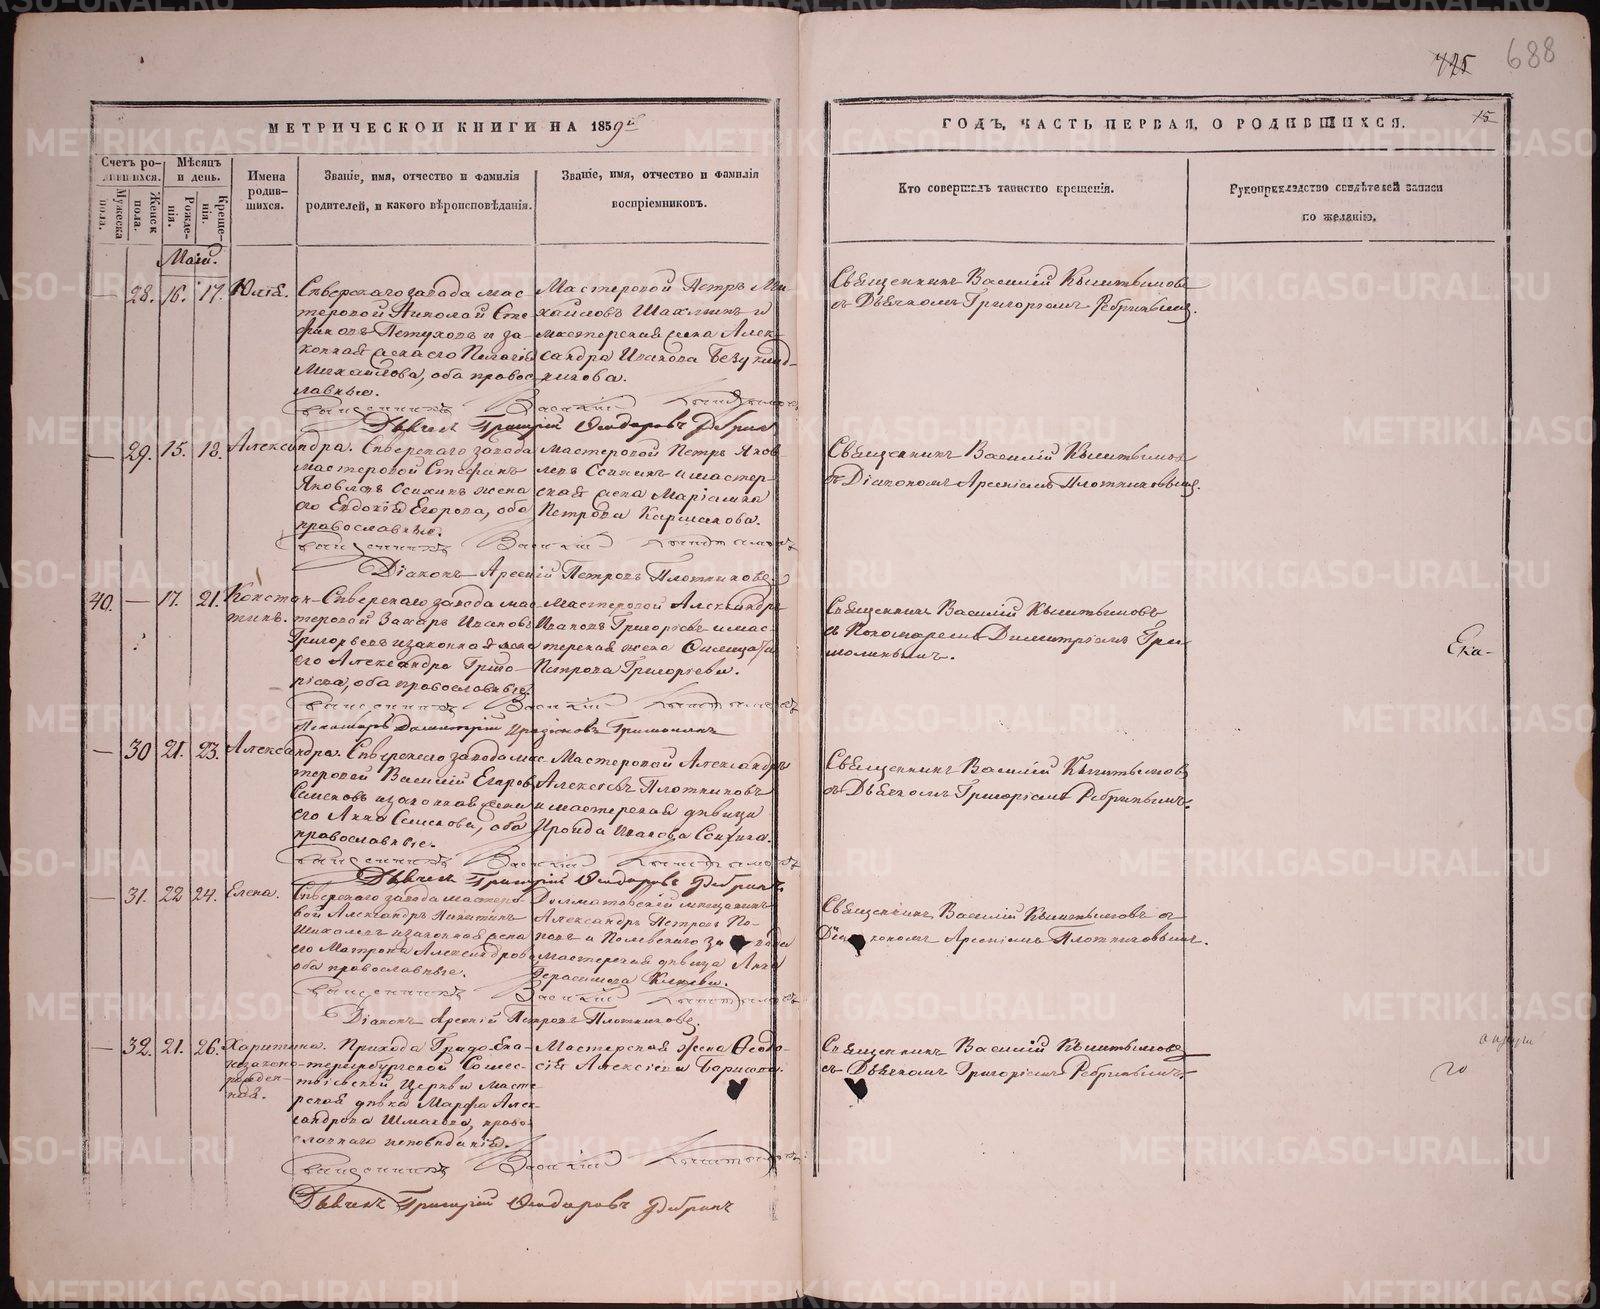 688
МЕТРИЧЕСКОЙ КНИГИ НА 1859й
ГОДЪ, ЧАСТЬ ПЕРВАЯ, О РОДИВШИХСЯ.
15
Счетъ родившихся.
Мужеска пола.
Женск пола.
Мѣсяцъ и день.
Рожденія.
Крещенія.
Имена родившихся.
Званіе, имя, отчество и фамилія родителей, и какого вѣроисповѣданія.
Званіе, имя, отчество и фамилія воспріемниковъ.
Кто совершалъ таинство крещенія.
Рукоприкладство свидѣтелей записи по желанію.
Май.
28. 16. 17. Юлія.
Сѣверскаго завода мас-
теровой Николай Сте-
фановъ Пѣтуховъ и за-
конная жена его Пелагія
Михайлова, оба право-
славные.
Мастеровой Петръ Ми-
хайловъ Шахминъ и
мастерская жена Алек-
сандра Иванова
Священникъ Василій Кыштымовъ
съ Дьячкомъ Григоріемъ Ребринымъ.
Священникъ Василій Кыштымовъ
Дьячекъ Григорій Ѳеодоровъ Ребринъ
29. 15. 18. Александра.
Сѣверскаго завода
мастеровой Стефанъ
Яковлевъ Сохинъ жена
его Евдокія Егорова, оба
православные.
Мастеровой Петръ Яков-
левъ Сохинъ и мастер-
ская жена Маріамна
Петрова Карманова.
Священникъ Василій Кыштымовъ
съ Діакономъ Арсеніемъ Плотниковымъ.
Священникъ Василій Кыштымовъ
Діаконъ Арсеній Петровъ Плотниковъ
40. — 17. 21. Констан-
тинъ.
Сѣверскаго завода мас-
теровой Захаръ Ивановъ
Григорьевъ и законная жена
его Александра Григо-
рьева, оба православные.
Мастеровой Александръ
Ивановъ Григорьевъ и мас-
терская жена
Петрова Григорьева.
Священникъ Василій Кыштымовъ
съ Пономаремъ Димитріемъ
Ека-
Священникъ Василій Кыштымовъ
Пономарь Димитрій
30 21. 23. Александра.
Сѣверскаго завода мас-
теровой Василій Егоровъ
Семеновъ и законная жена
его Анна Семенова, оба
православные.
Мастеровой Александръ
Алексѣевъ Плотниковъ
и мастерская дѣвица
Ираида Иванова Сохина.
Священникъ Василій Кыштымовъ
съ Дьячкомъ Григоріемъ Ребринымъ.
Священникъ Василій Кыштымовъ
Дьячекъ Григорій Ѳеодоровъ Ребринъ
31. 22 24. Елена.
Сѣверскаго завода мастеро-
вой Александръ Никитинъ
и законная жена
его Матрона Александрова
оба православные.
Долматовскій мещанинъ
Александръ Петровъ По-
повъ и Полевскаго завода
мастерская дѣвица Анна
Герасимова
Священникъ Василій Кыштымовъ съ
Діакономъ Арсеніемъ Плотниковымъ.
Священникъ Василій Кыштымовъ
Діаконъ Арсеній Петровъ Плотниковъ.
32. 21. 26. Харитина.
незаконно-
рожден-
ная.
Прихода Градо-Ека-
теринбургской Сошес-
твіевской Церкви Масте-
рская дѣвка Марфа Алек-
сандрова Шмакова, право-
славнаго исповѣданія.
Мастерская жена Ѳеодо-
сія Алексіева Борисова.
Священникъ Василій Кыштымовъ
съ Дьячкомъ Григоріемъ Ребринымъ.
го
Священникъ Василій Кыштымовъ
Дьячекъ Григорій Ѳеодоровъ Ребринъ
METRIKI.GASO-URAL.RU